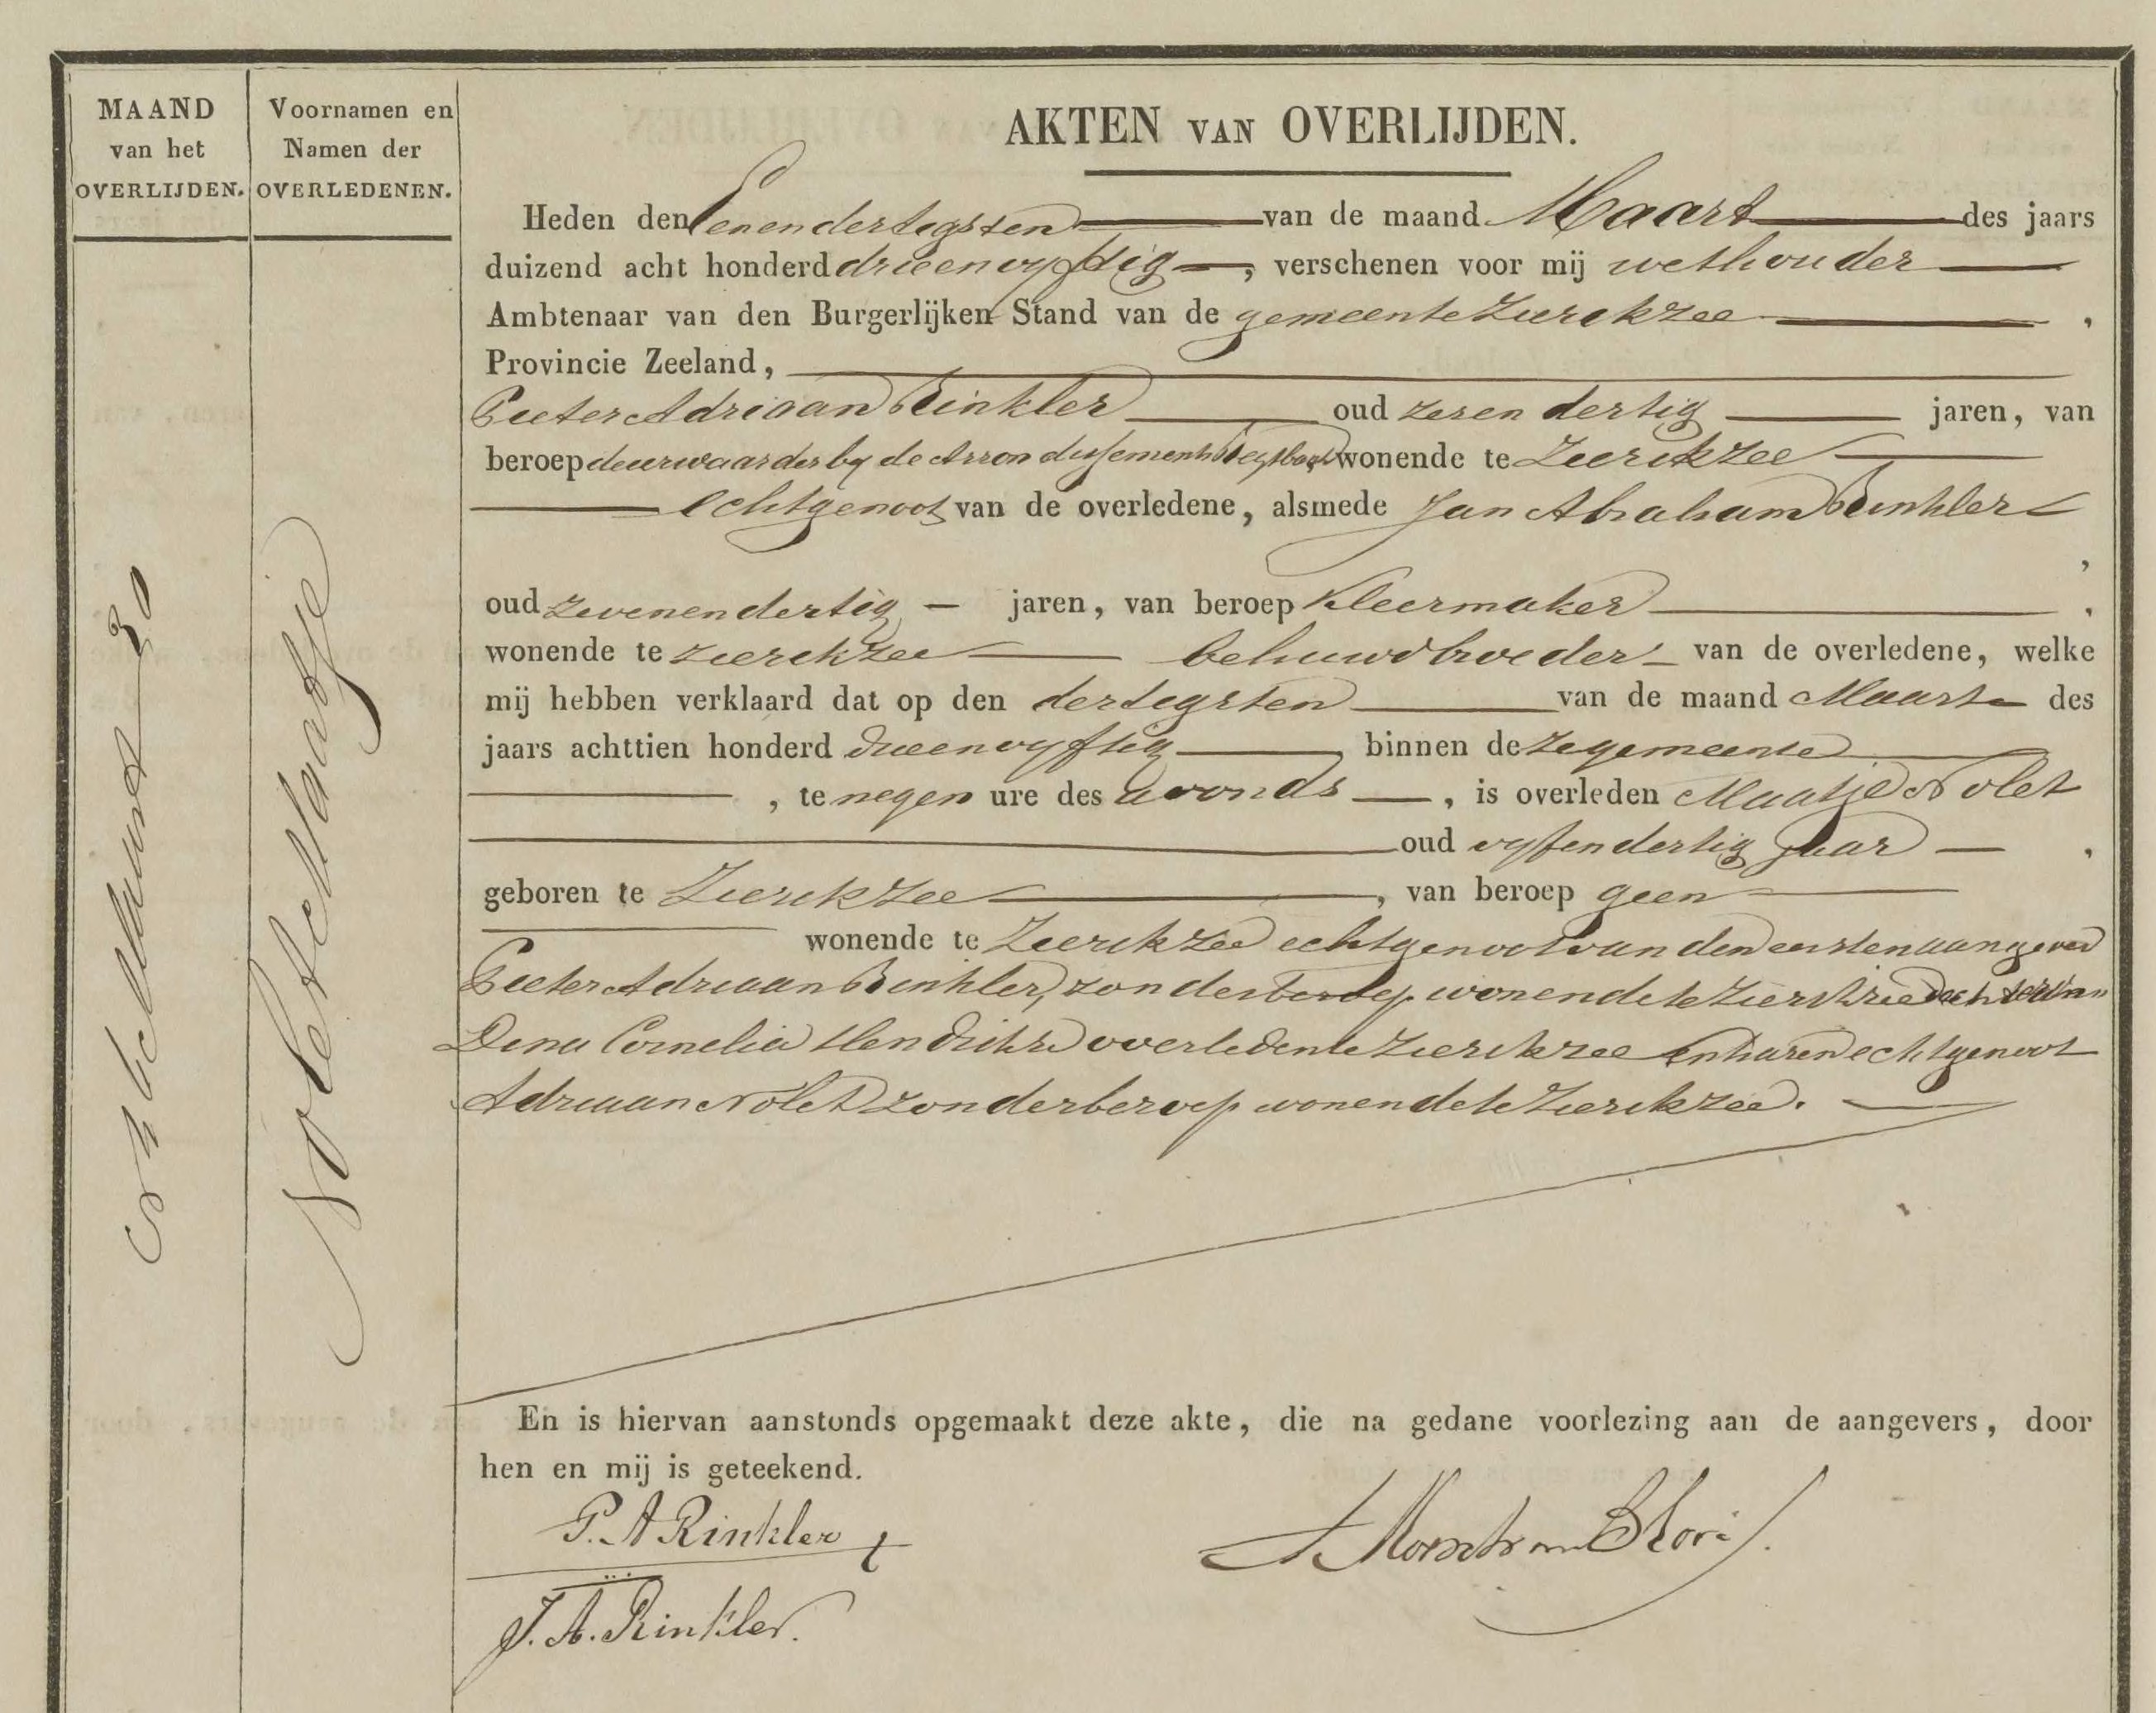 MAAND
van het
OVERLIJDEN.
Voornamen en
Namen der
OVERLEDENEN.
AKTEN VAN OVERLIJDEN.
Heden den Eenendertigsten van de maand Maart des jaars
duizend acht honderd drieenvyftig, verschenen voor mij wethouder
Ambtenaar van den Burgerlijken Stand van de gemeente Zierikzee,
Provincie Zeeland,
Pieter Adriaan Rinkler oud zesendertig jaren, van
beroep deurwaarder by de Arrondissements Regtbank wonende te Zierikzee
echtgenoot van de overledene, alsmede Jan Abraham Rinkler
,
oud zevenendertig jaren, van beroep Kleermaker,
wonende te Zierikzee behuwdbroeder van de overledene, welke
mij hebben verklaard dat op den dertigsten van de maand Maart des
jaars achttien honderd drieenvyftig binnen deze gemeente
, te negen ure des avonds, is overleden Maatje Nolet
oud vyfendertig jaar,
geboren te Zierikzee, van beroep geen
wonende te Zierikzee echtgenoot van den eersten aangever
Pieter Adriaan Rinkler, zonder beroep wonende te Zierikzee dochter van
Dina Cornelia Hendrikse overleden te Zierikzee en haren echtgenoot
Adriaan Nolet zonder beroep wonende te Zierikzee.
En is hiervan aanstonds opgemaakt deze akte, die na gedane voorlezing aan de aangevers, door
hen en mij is geteekend.
P. A Rinkler
J. A. Rinkler.
Maart 30
Nolet Maatje